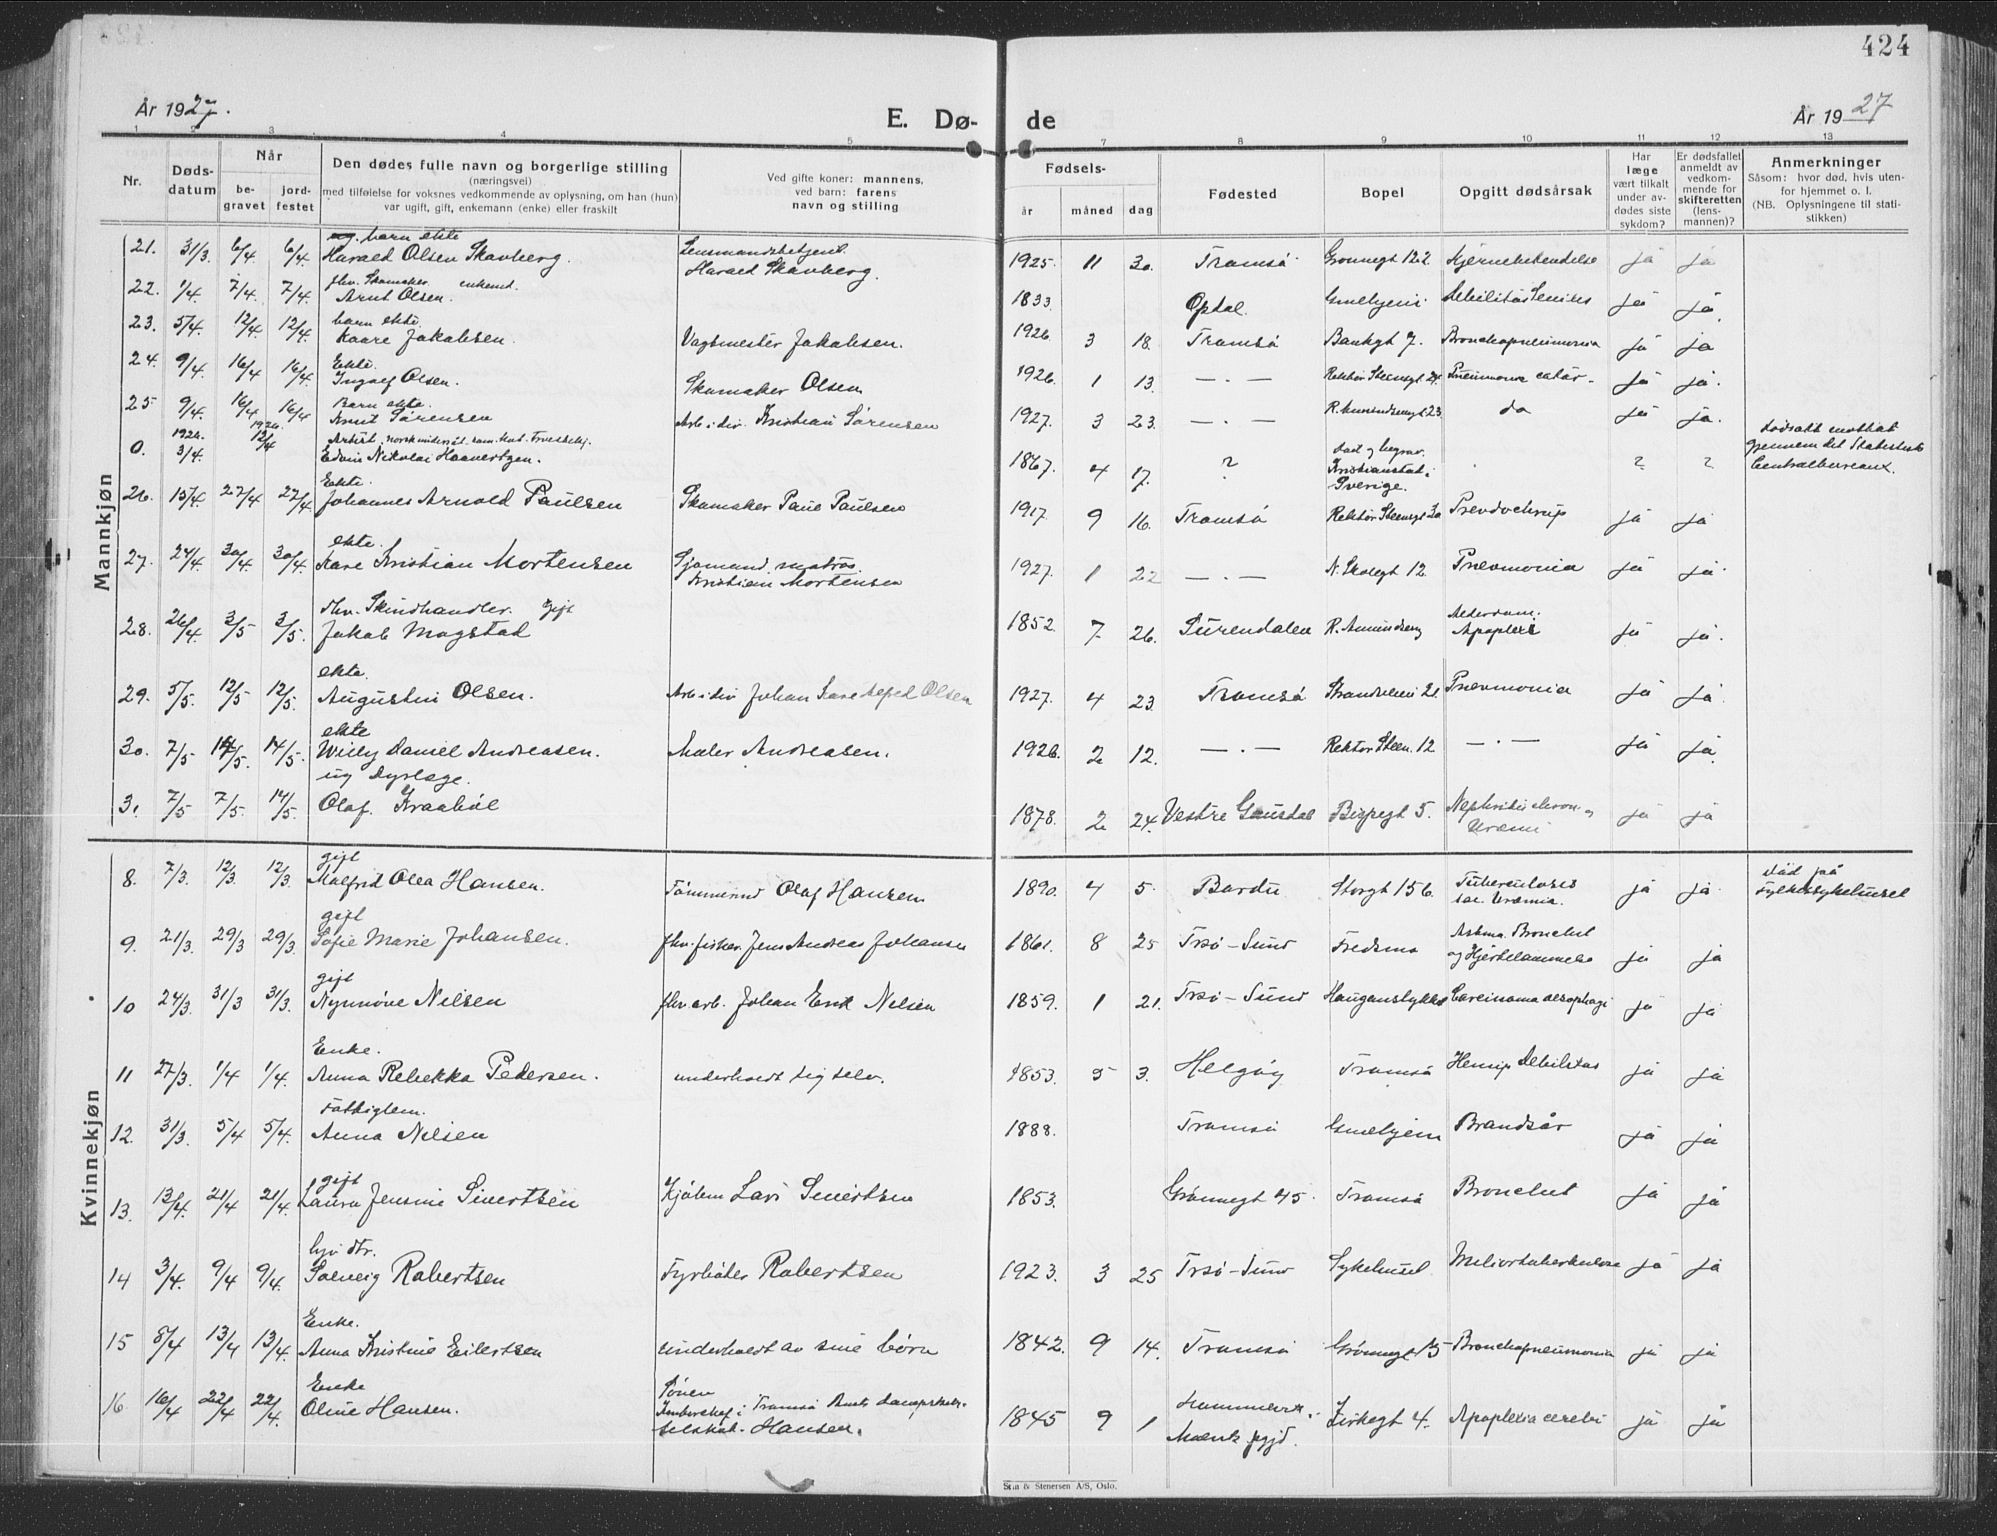 424
År 1927.
E. Dø-
de
År 1927
1 2 3 4 5 7 8 9 10 11 12 13
Nr.
Døds-
datum
Når
be-
gravet
jord-
festet
Den dødes fulle navn og borgerlige stilling
(næringsvei)
med tilføielse for voksnes vedkommende av oplysning, om han (hun)
var ugift, gift, enkemann (enke) eller fraskilt
Ved gifte koner: mannens,
ved barn: farens
navn og stilling
Fødsels-
år
måned
dag
Fødested
Bopel
Opgitt dødsårsak
Har
læge
vært tilkalt
under av-
dødes siste
sykdom?
Er dødsfallet
anmeldt av
vedkom-
mende for
skifteretten
(lens-
mannen)?
Anmerkninger
Såsom: hvor død, hvis uten-
for hjemmet o. l.
(NB. Oplysningene til stati-
stikken)
Mannkjøn
barn ekte
21. 31/3 6/4 6/4. Harald Olsen Skavberg. Lensmandsbetjent Harald Skavberg. 1925. 11 30. Tromsø Grønnegt 122 Hjernebetendelse ja ja
fhv. Skomaker enkemd.
22. 1/4. 7/4. 7/4. Arnt Olsen. 1833 Opdal. Gmlehjem. debilitas Seniles ja ja.
barn ekte.
23. 5/4. 12/4 12/4. Kaare Jakobsen. Vagtmester Jakobsen. 1926. 3 18. Tromsø Bankgt 7. Bronchopneumonia ja ja
Ekte.
24. 9/4. 16/4 16/4. Ingolf Olsen. Skomaker Olsen 1926. 1 13. — . — Rektor Steensgt 24. Pneumonia catar. ja ja.
Barn ekte.
25 9/4. 16/4 16/4 Knut Sørensen Arb. i div. Kristian Sørensen 1927. 3 23. — . — R. Amundsensgt 23 do ja ja.
1926. 1926.
0. 3/4. 12/4 Artist, norsk undersåt
Edvin Nikolai Haavertzen. 1867. 4 17. ? død og begrav. Kristianstad i Sverige. ? ? dødsatt. mottat gjennem det Statistisk Centralbureaux.
Ekte.
26. 15/4. 22/4 22/4. Johannes Arnold Paulsen Skomaker Paul Paulsen 1917. 9 16. Tromsø Rektor Steensgt 30 Psevdochrup ja ja
ekte.
27. 24/4. 30/4 30/4. Kåre Kristian Mortensen Sjømand, matros. Kristian Mortensen 1927. 1 22 — . — N. Skolegt 12. Pnevmonia ja ja.
fhv. Skindhandler. Gift
28. 26/4 3/5 3/5. Jakob Mogstad 1852. 7 26. Surendalen R. Amundseng Alderdom. Apoplexi ja ja.
ekte.
29. 5/5. 12/5 12/5. Augustin Olsen. Arb. i div Johan Olsen 1927. 4 23. Tromsø Strandveien 21. Pnevmonia ja ja.
ekte
30. 7/5 14/5. 14/5. Willy Daniel Andreasen. Maler Andreasen. 1926. 2 12. — . — Rektor Steen. 12 — . — ja ja.
ug Dyrlæge.
31 7/5 7/5. 14/5. Olaf. Kraabøl 1878. 2 24. Vestre Gausdal Bispegt 5. Nephritis chron. og Uræmi ja ja
Kvinnekjøn
gift
8. 7/3. 12/3. 12/3. Malfrid Olea Hansen. Tømmermd Olaf Hansen 1890. 4 5. Bardu Storgt 156. Tuberculosis Uræmia. ja ja. død på Fylkessykehuset
gift
9. 21/3. 29/3 29/3. Sofie Marie Johansen. fhv. fisker. Jens Andreas Johansen 1861. 8 25 Trsø-Sund Fredsmo Astma. Bronchit og Hjertelammelse ja ja
gift
10 24/3. 31/3 31/3. Nynnøve Nilsen fhv. arb. Johan Erik Nilsen 1859. 1 21. Trsø-Sund Hauganstykket Carcinoma oesophagi ja ja
Enke.
11 27/3. 1/4 1/4. Anna Rebekka Pedersen. underholdt sig selv. 1853. 5 3. Helgøy Tromsø debilitas ja ja
Fattiglem.
12. 31/3. 5/4 5/4. Anna Nilsen 1888. Tromsø Gmlehjem Brandsår ja ja
gift
13. 13/4. 21/4 21/4. Laura Jensine Sivertsen Kjølem Sivertsen 1853. Grønnegt 45. Tromsø Bronchit ja ja
14 3/4. 9/4 9/4. Solveig Robertsen Fyrbøter Robertsen 1923. 3 25 Trsø-Sund Sykehuset. Miliærtuberkulose ja ja
Enke.
15 8/4 13/4 13/4. Anna Kristine Eilertsen underholdt av sine børn 1842. 9 14. Tromsø Grønnegt Bronchopneumonia ja ja
Enke
16 16/4 22/4 22/4. Oline Hansen. Sønen Kontorchef i Tromsø Amts dampskibs-selskab. Hansen. 1845 9 1 Kirkegt 4. Apoplexia cerebri ja ja
Stin & Stenersen A/S, Oslo.